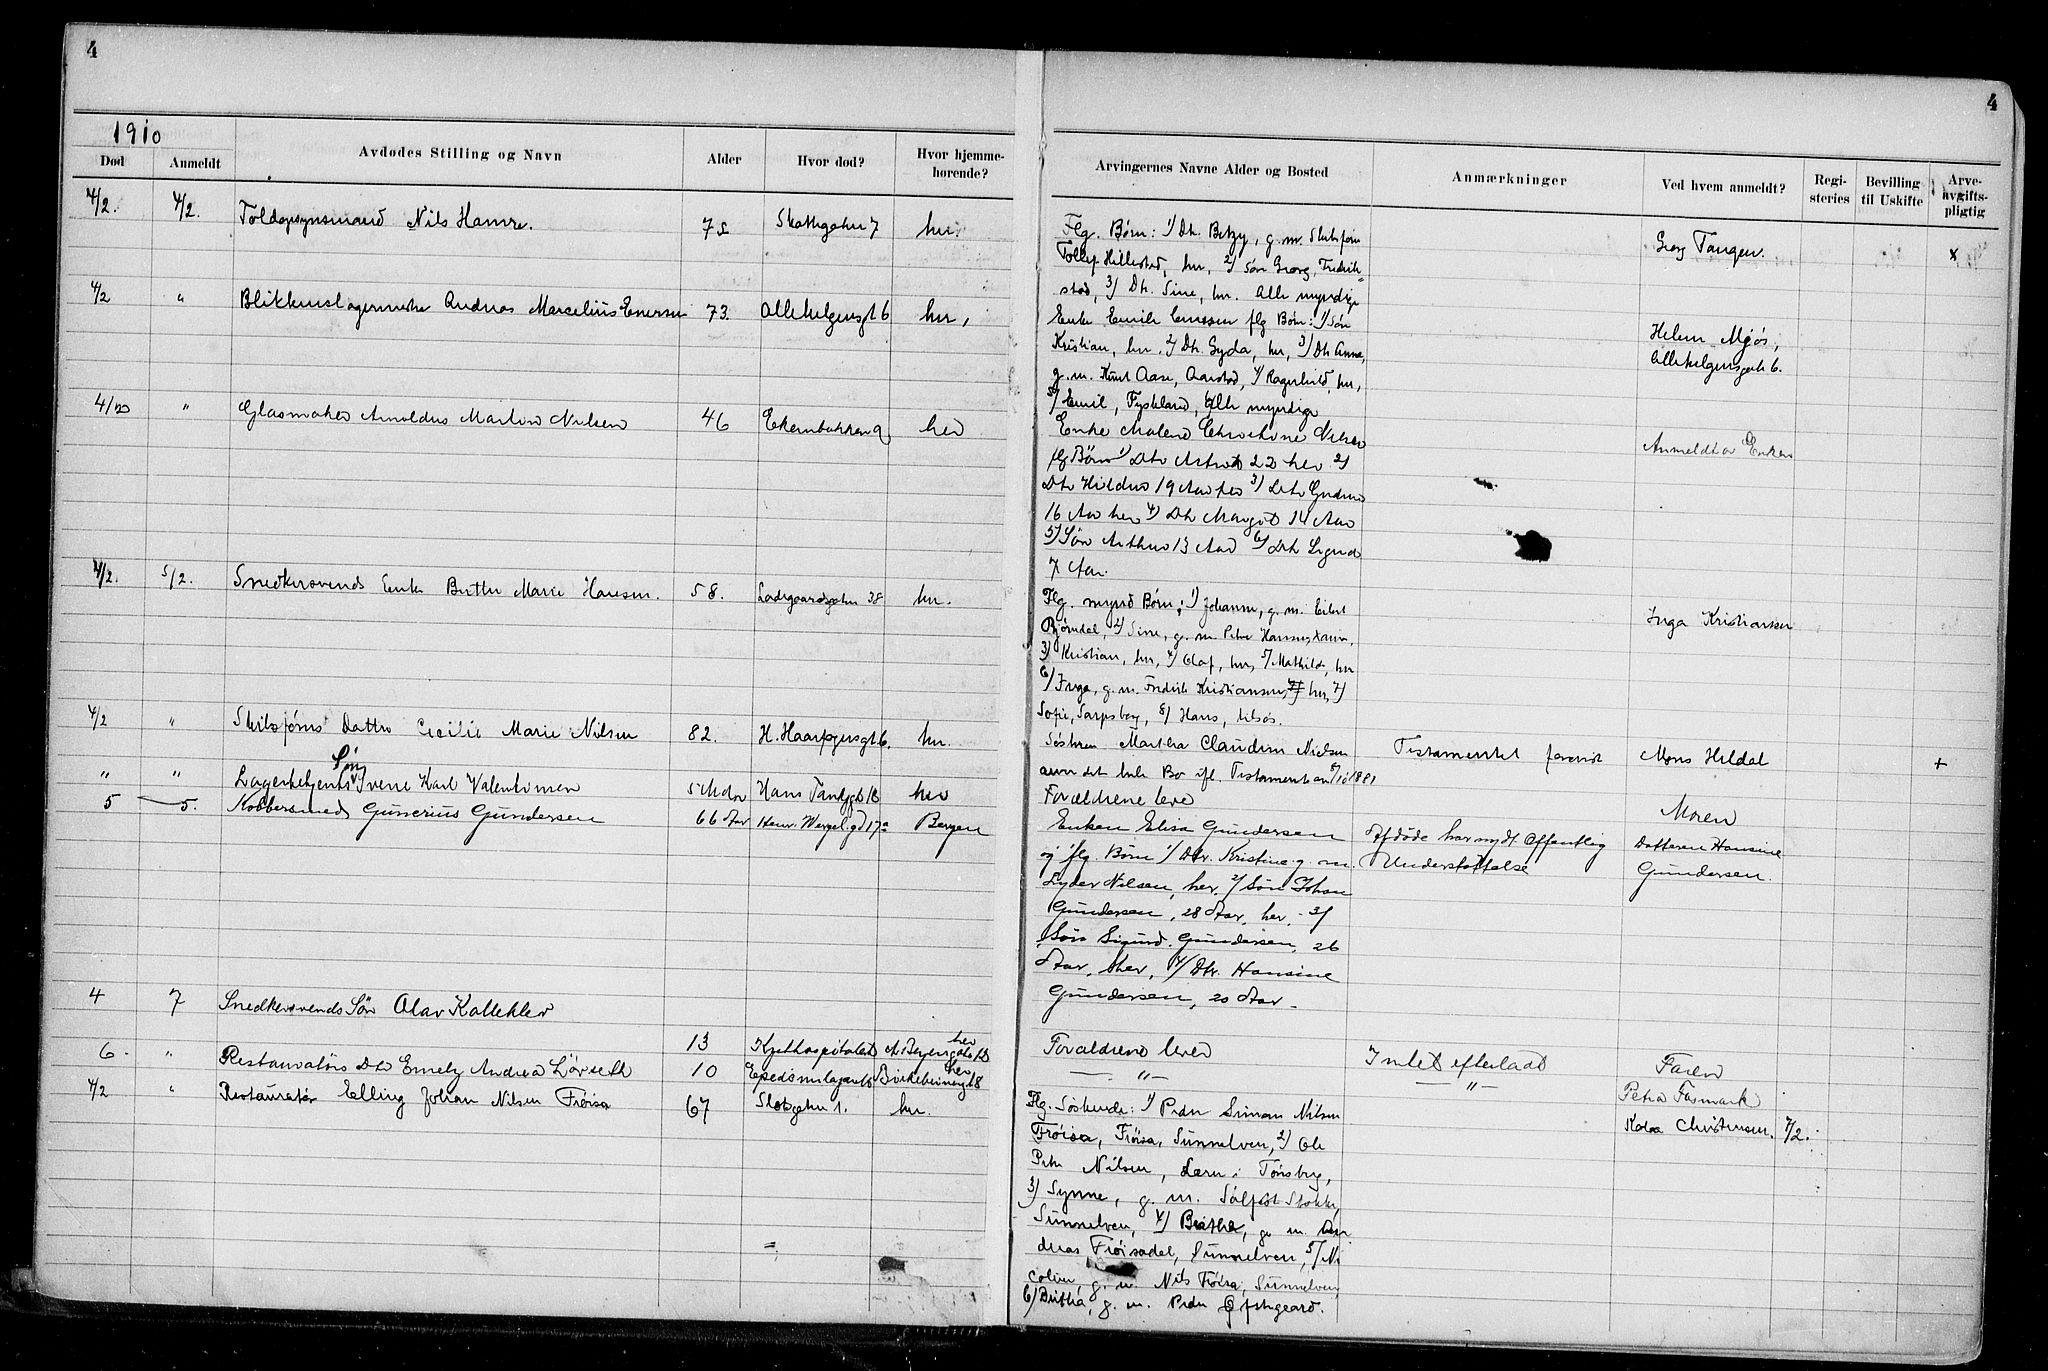 4
4
1910
Død
Anmeldt
Avdødes Stilling og Navn
Alder
Hvor død?
Hvor hjemme-
hørende?
Arvingernes Navne Alder og Bosted
Anmærkninger
Ved hvem anmeldt?
Regi-
steries
Bevilling
til Uskifte
Arve-
avgifts-
pligtig
4/2. 4/2. Toldopsynsmand Nils Hamre. 75 7 her.
Flg. Børn: 1) Dtr. Betzy, g. m. Skibsfører
Tollef Hillestad, her, 2) Søn Georg, Fredrik-
stad, 3) Dtr. Sine, her. Alle myndige
Georg Tangen. x
4/2 " Blikkenslagermester Andreas Marcelius Enersen 73. Allehelgensgt 6 her,
Enke Emilie Enersen flg Børn: 1) Søn
Kristian, her, 2) Dtr. Gyda, her, 3) Dtr Anna,
g. m. Knut Aase, Aarstad, 4) Ragnhild, her,
5) Emil, Tyskland, Alle myndige
Helene Mjøs,
Allehelgensgate 6.
4/2 " Glasmager Arnoldus Martin Nilsen 46 her
Enke Malene Christine Nilsen
flg Børn 1) Dtr Astrid 22 her 2)
Dtr Hildur 19 Aar her 3) Dtr Gudrun
16 Aar her 4) Dtr Margot 14 Aar
5) Søn Arthur 13 Aar 6) Dtr Sigrid
7 Aar.
Anmeldt av Enken
4/2. 5/2. Snedkersvends Enke Berthe Marie Hansen. 58. Ladegaardsgaten 38 her.
Flg. mynd Børn: 1) Johanne, g. m. Eilert
Bjørndal, 2) Sine, g. m. Peter Hansen,
3) Kristian, her, 4) Olaf, her, 5) Mathilde, her
6) Inga, g. m. Fredrik Kristiansen, her, 7)
Sofie, Sarpsborg, 8) Hans, tilsjøs.
Inga Kristiansen
4/2 " Skibsførers Datter Cecilie Marie Nilsen 82. H. Haarfagersgt 6. her.
Søsteren Martha Claudine Nielsen
arver det hele Bo ifl. Testament av 5/10 1881
Testamentet forevist
Mons Hildal +
" " Lagerbetjents Søn Sverre Karl Valentinsen 5 Mdr Hans Tanksgt 18 her
Forældrene lever
Moren
5 5. Kobbersmed Gunerius Gundersen 66 Aar Henr. Wergel. gd 17a Bergen
Enken Elisa Gundersen
og flg. Børn 1) Dtr. Kristine g. m.
Lyder Nilsen, her, 2) Søn Johan
Gundersen, 28 Aar, her, - 3)
Søn Sigurd Gundersen, 26
Aar, her, 4) Dtr. Hansine
Gundersen, 20 Aar -
Afdøde har nydt Offentlig
Understøttelse
Datteren Hansine
Gundersen.
4 7 Snedkersvends Søn Olav 13 her
Forældrene lever
Intet efterladt
Faren
6 " Restauratørs Dtr Emely Andrea Løvseth 10 her
- " -
- " -
Petra Fasmark
4/2 " Restauratør Elling Johan Nilsen Frøisa 67 Slotsgaten 1. her.
Flg. Søskende: 1) Peder Simon Nilsen
Frøisa, Frøisa, Sunnelven, 2) Ole
Peter Nilsen, Lærer i Tønsberg,
3) Synne, g. m. Stokke,
Sunnelven, 4) Berthe, g. m. An-
dreas Frøisadal, Sunnelven, 5) Ni-
coline, g. m. Nils Frøisa, Sunnelven
6) Britha, g. m. Peder
Christensen. 7/2.